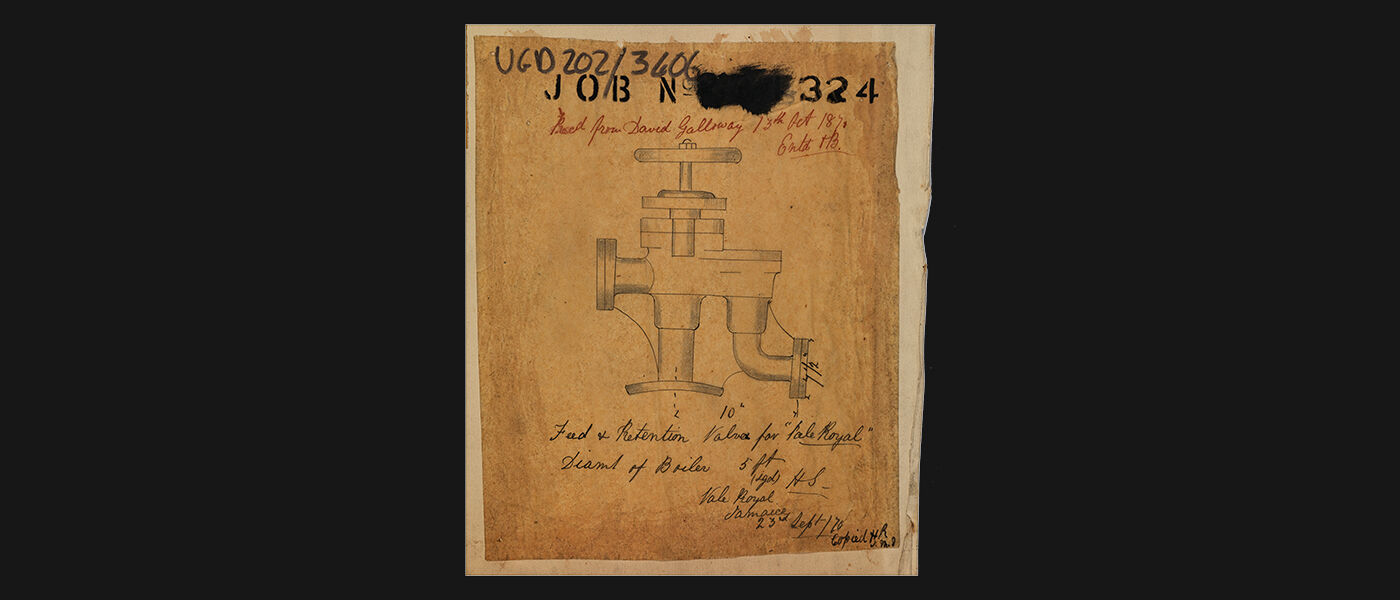 UGD 202/3606
JOB Nº 324
Recd from David Galloway 13th Oct 187
Entd HB.
7½"
10"
Feed & Retention Valves for "Vale Royal"
Diamt of Boiler 5 ft
(sgd) HS
Vale Royal
Jamaica
23rd Sept/70
Copied HR